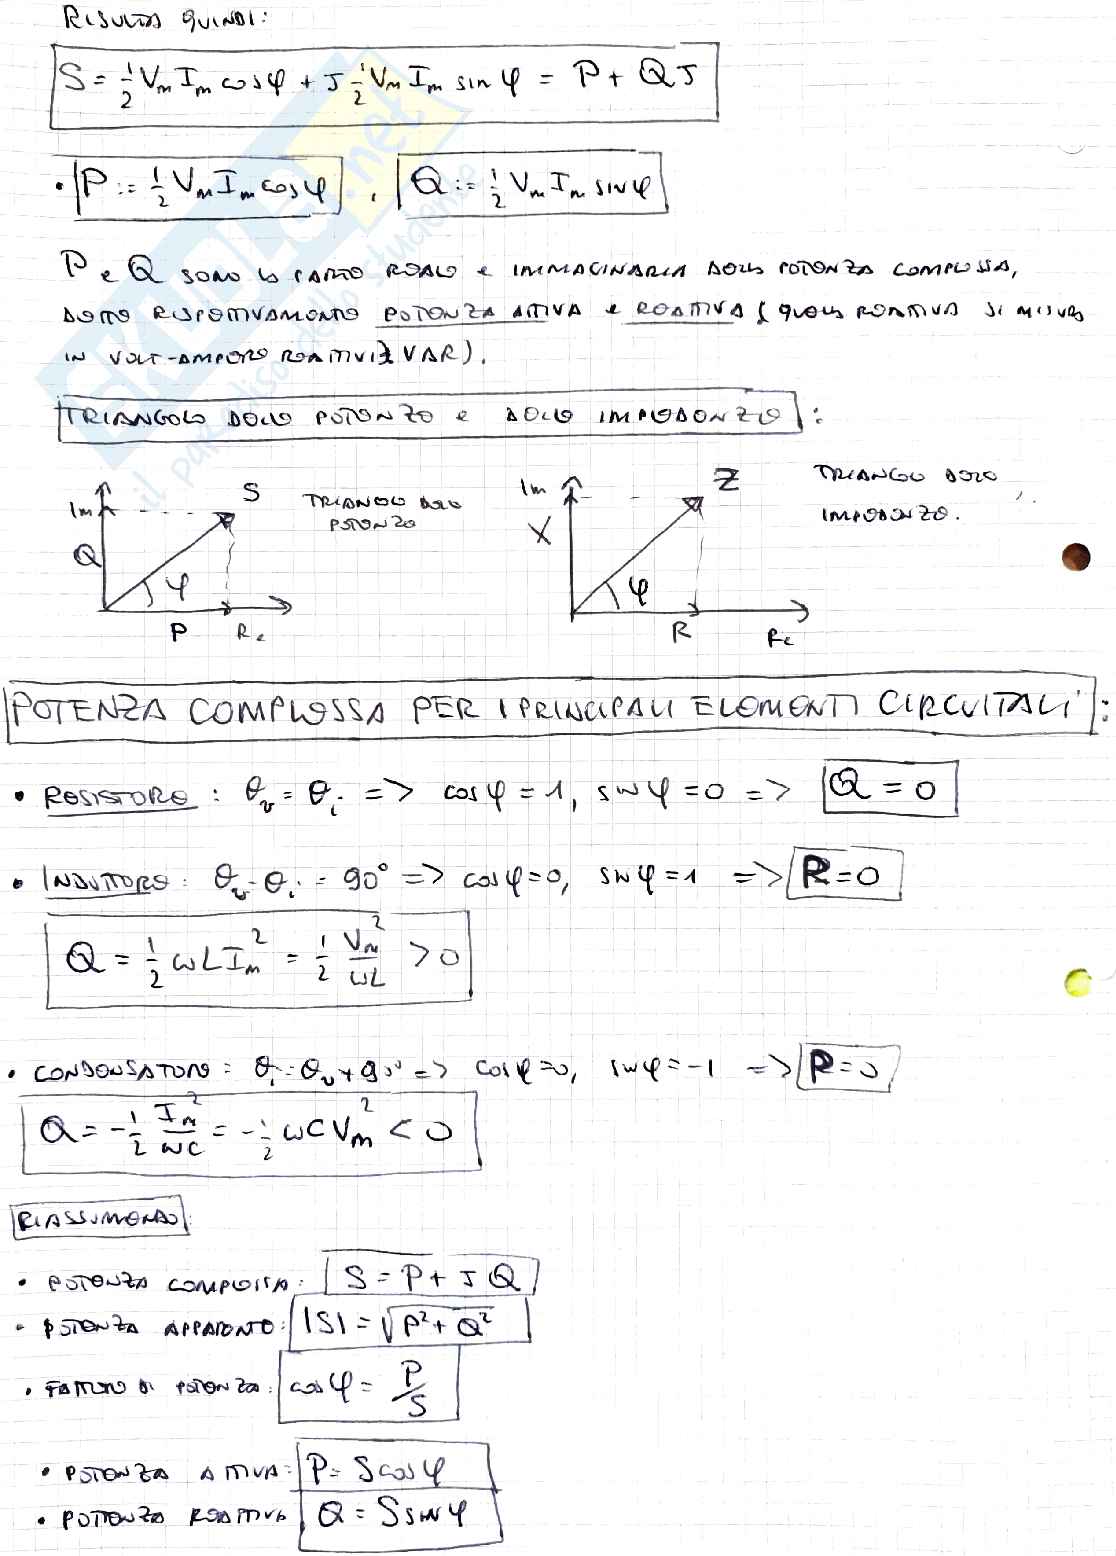 RISULTA QUINDI:
S = 1/2 Vm Im cosφ + J 1/2 Vm Im sin φ = P + QJ
• P := 1/2 Vm Im cosφ , Q := 1/2 Vm Im sinφ
P e Q SONO LA PARTE REALE e IMMAGINARIA DELLA POTENZA COMPLESSA,
DETTE RISPETTIVAMENTE POTENZA ATTIVA e REATTIVA (QUELLA REATTIVA SI MISURA
IN VOLT-AMPERE REATTIVI VAR).
TRIANGOLO DELLE POTENZE e DELLE IMPEDENZE:
Im S TRIANGOLO DELLE
POTENZE
Q
φ
P Re
Im Z TRIANGOLO DELLE
IMPEDENZE.
X
φ
R Re
POTENZA COMPLESSA PER I PRINCIPALI ELEMENTI CIRCUITALI:
• RESISTORE: θv = θi => cosφ = 1, sinφ = 0 => Q = 0
• INDUTTORE: θv - θi = 90° => cosφ = 0, sinφ = 1 => P = 0
Q = 1/2 ωL Im² = 1/2 Vm²/ωL > 0
• CONDENSATORE: θi = θv + 90° => cosφ = 0, sinφ = -1 => P = 0
Q = -1/2 Im²/ωC = -1/2 ωC Vm² < 0
RIASSUMENDO:
• POTENZA COMPLESSA: S = P + J Q
• POTENZA APPARENTE: |S| = √P² + Q²
• FATTORE DI POTENZA: cosφ = P/S
• POTENZA ATTIVA: P = S cosφ
• POTENZA REATTIVA Q = S sinφ
SKUOLA.net
il paradiso dello studente